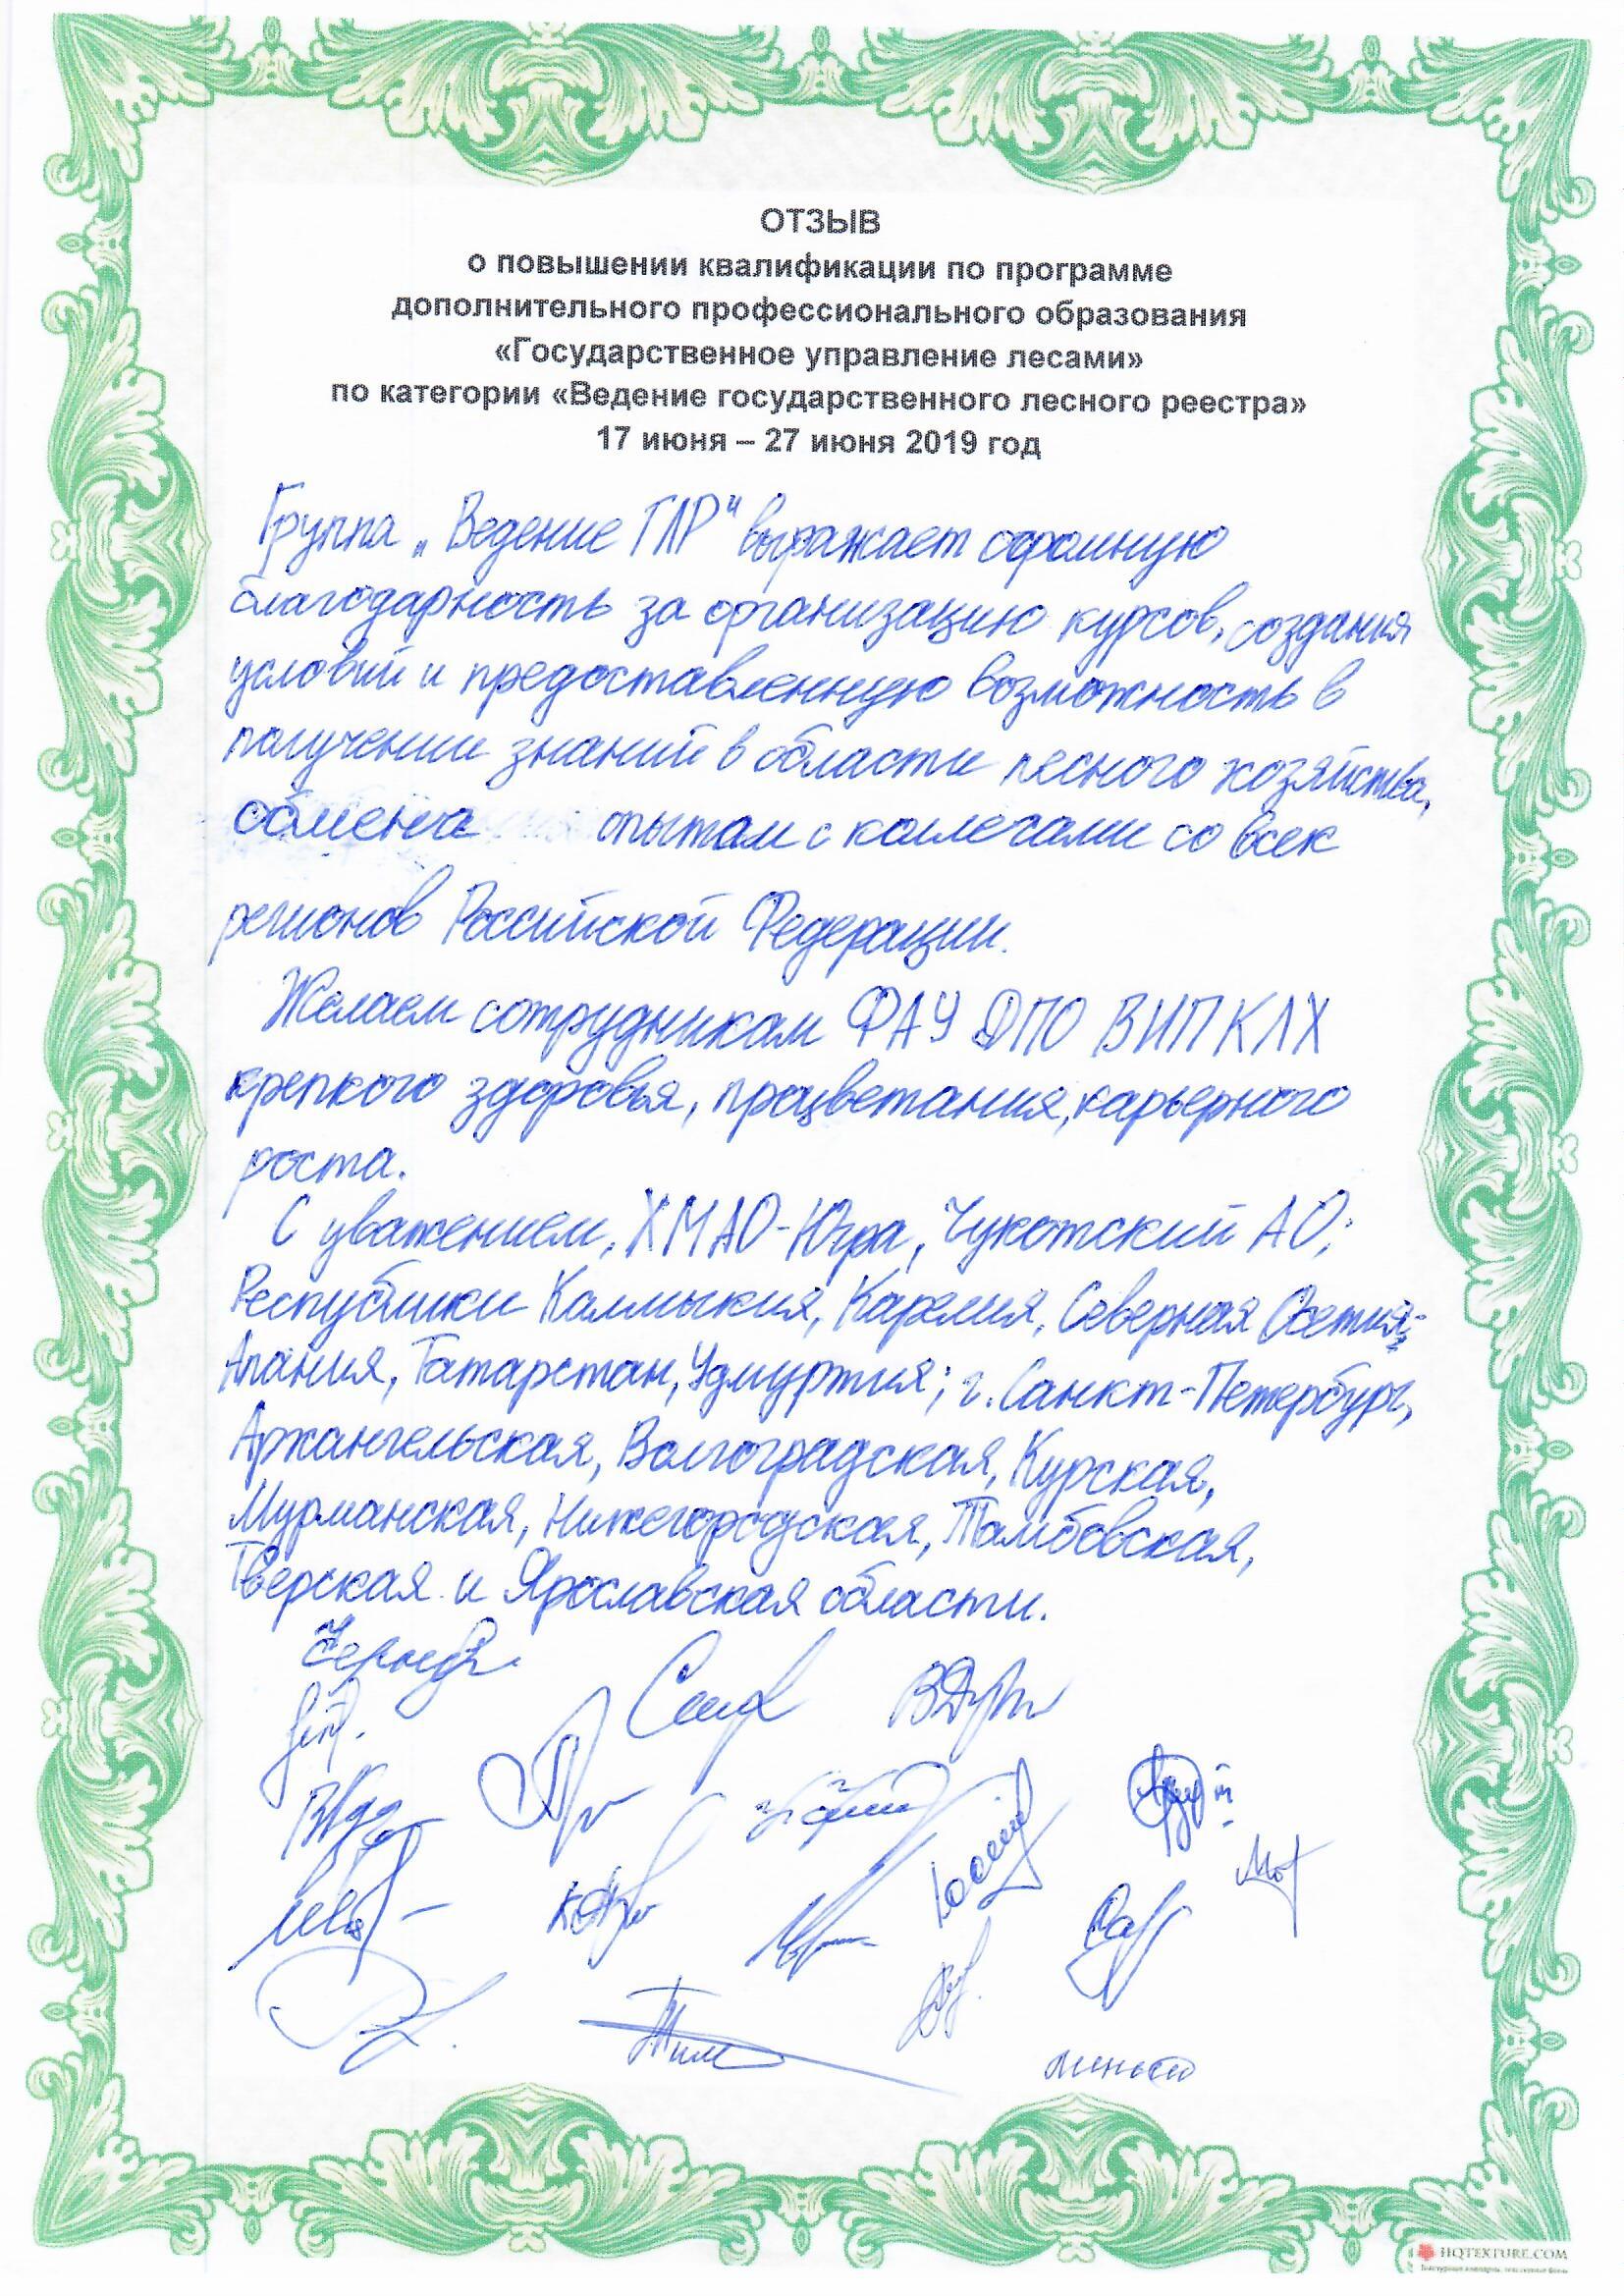 ОТЗЫВ
о повышении квалификации по программе
дополнительного профессионального образования
«Государственное управление лесами»
по категории «Ведение государственного лесного реестра»
17 июня – 27 июня 2019 год
Группа „Ведение ГЛР“ выражает огромную
благодарность за организацию курсов, создания
условий и предоставленную возможность в
получении знаний в области лесного хозяйства,
обмена опытом с коллегами со всех
регионов Российской Федерации.
Желаем сотрудникам ФАУ ДПО ВИПКЛХ
крепкого здоровья, процветания, карьерного
роста.
С уважением, ХМАО-Югра, Чукотский АО;
Республики Калмыкия, Карелия, Северная Осетия-
Алания, Татарстан, Удмуртия; г. Санкт-Петербург,
Архангельская, Волгоградская, Курская,
Мурманская, Нижегородская, Тамбовская,
Тверская и Ярославская области.
HQTEXTURE.COM